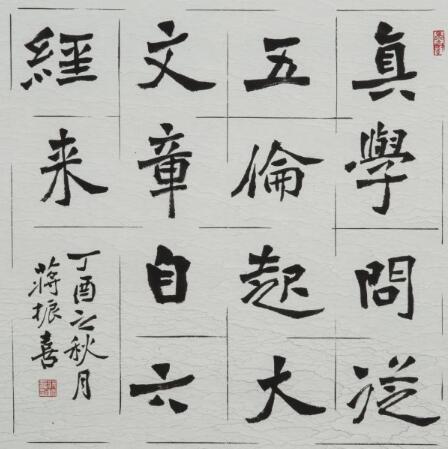 真學問從
五倫起大
文章自六
經来
丁酉之秋月
蒋振喜